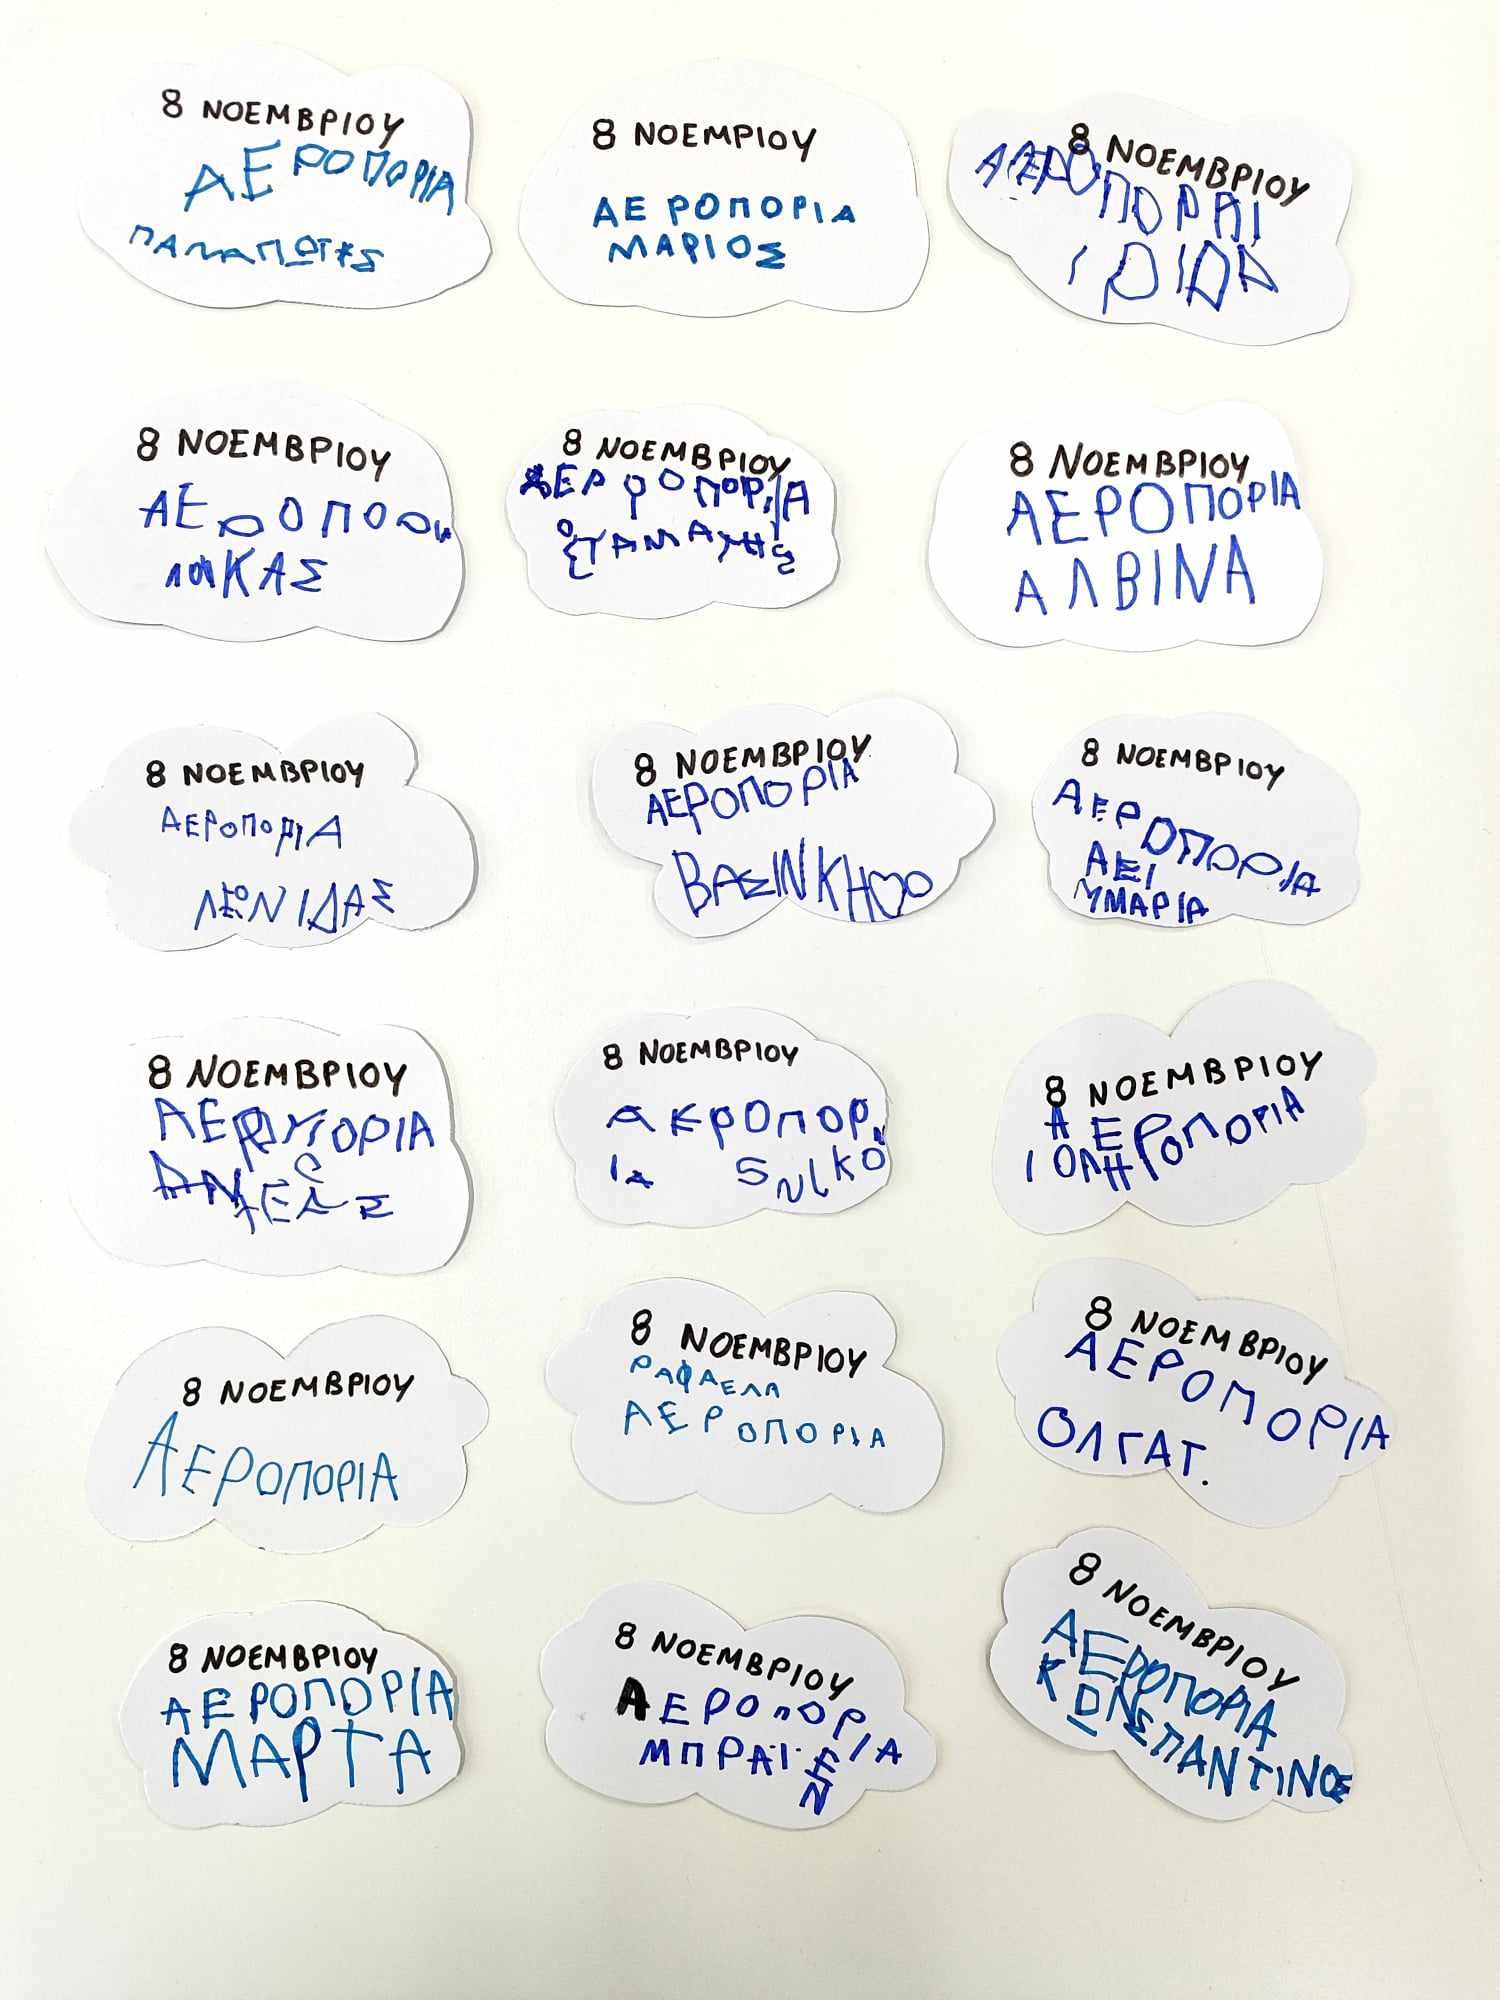 8 ΝΟΕΜΒΡΙΟΥ
ΑΕΡΟΠΟΡΙΑ
8 ΝΟΕΜΡΙΟΥ
ΑΕΡΟΠΟΡΙΑ
ΜΑΡΙΟΣ
8 ΝΟΕΜΒΡΙΟΥ
ΑΕΡΟΠΟΡΑΙ
8 ΝΟΕΜΒΡΙΟΥ
ΚΑΣ
8 ΝΟΕΜΒΡΙΟΥ
8 ΝΟΕΜΒΡΙΟΥ
ΑΕΡΟΠΟΡΙΑ
ΑΛΒΙΝΑ
8 ΝΟΕΜΒΡΙΟΥ
ΑΕΡΟΠΟΡΙΑ
ΛΕΟΝΙΔΑΣ
8 ΝΟΕΜΒΡΙΟΥ
ΑΕΡΟΠΟΡΙΑ
8 ΝΟΕΜΒΡΙΟΥ
ΑΕΡΟΠΟΡΙΑ
ΑΕΙ
ΜΑΡΙΑ
8 ΝΟΕΜΒΡΙΟΥ
8 ΝΟΕΜΒΡΙΟΥ
ΑΕΡΟΠΟΡ
ΙΑ
8 ΝΟΕΜΒΡΙΟΥ
ΑΕΡΟΠΟΡΙΑ
ΙΟΛΗ
8 ΝΟΕΜΒΡΙΟΥ
ΑΕΡΟΠΟΡΙΑ
8 ΝΟΕΜΒΡΙΟΥ
ΡΑΦΑΕΛΑ
ΑΕΡΟΠΟΡΙΑ
8 ΝΟΕΜΒΡΙΟΥ
ΑΕΡΟΠΟΡΙΑ
ΟΛΓΑΤ.
8 ΝΟΕΜΒΡΙΟΥ
ΑΕΡΟΠΟΡΙΑ
ΜΑΡΤΑ
8 ΝΟΕΜΒΡΙΟΥ
ΑΕΡΟΠΟΡΙΑ
ΜΠΡΑΪΕΝ
8 ΝΟΕΜΒΡΙΟΥ
ΑΕΡΟΠΟΡΙΑ
ΚΩΝΣΠΑΝΤΙΝΟΣ